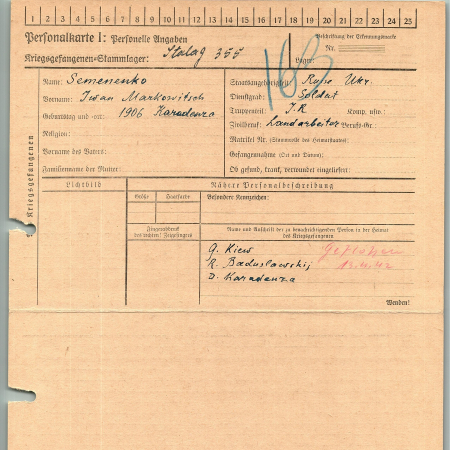 1 2 3 4 5 6 7 8 9 10 11 12 13 14 15 16 17 18 19 20 21 22 23 24 25
Personalkarte I: Personelle Angaben
Kriegsgefangenen-Stammlager: Stalag 355
Beschriftung der Erkennungsmarke
Nr.
Lager:
des Kriegsgefangenen
Name: Semenenko
Vorname: Iwan Markowitsch
Geburtstag und -ort: 1906 Karadenza
Religion:
Vorname des Vaters:
Familienname der Mutter:
Staatsangehörigkeit: Russe Ukr.
Dienstgrad: Soldat
Truppenteil: J.R. Komp. usw.:
Zivilberuf: Landarbeiter Berufs-Gr.:
Matrikel Nr. (Stammrolle des Heimatstaates):
Gefangennahme (Ort und Datum):
Ob gesund, krank, verwundet eingeliefert:
Lichtbild
Nähere Personalbeschreibung
Größe
Haarfarbe
Besondere Kennzeichen:
Fingerabdruck
des rechten! Zeigefingers
Name und Anschrift der zu benachrichtigenden Person in der Heimat
des Kriegsgefangenen
G. Kiew
R. Baduslawskij
D. Karadenza
Wenden!